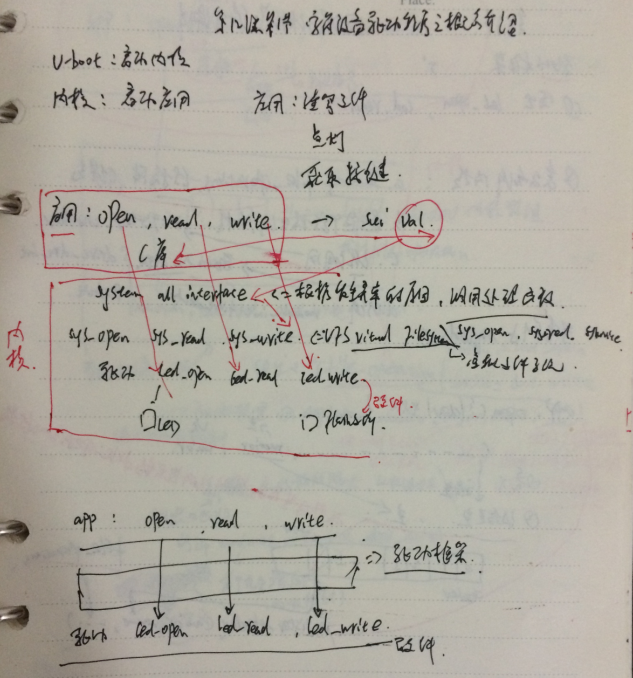 第12课第1节 字符设备驱动程序之概念介绍
U-boot:启动内核
内核:启动应用 应用:读写文件
点灯
获取按键
应用:open, read, write. → swi val.
C库
system call interface <= 根据发生异常的原因,调用处理函数
内核
sys_open sys_read sys_write <= VFS virtual Filesystem sys_open sysread syswrite
驱动 led_open led_read led_write
硬件
LED
app: open read, write.
=> 驱动框架
驱动 led_open led_read, led_write.
硬件